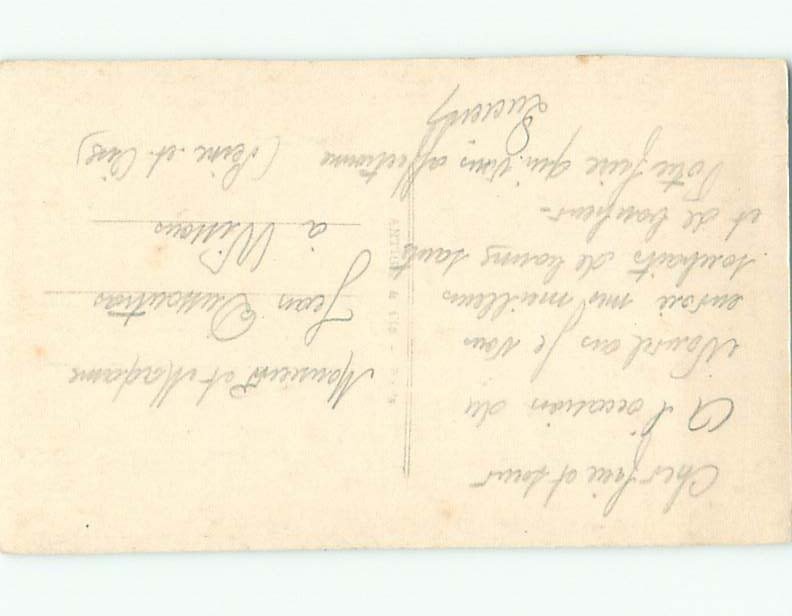 Cher frère et sœur
A l'occasion du
Nouvel ans je vous
envoi mes meilleurs
souhaits de bonne santé
et de bonheur-
Votre frère qui vous affectionne
Lucien
Monsieur et Madame
Jean
à Wissous
(Seine et Oise)